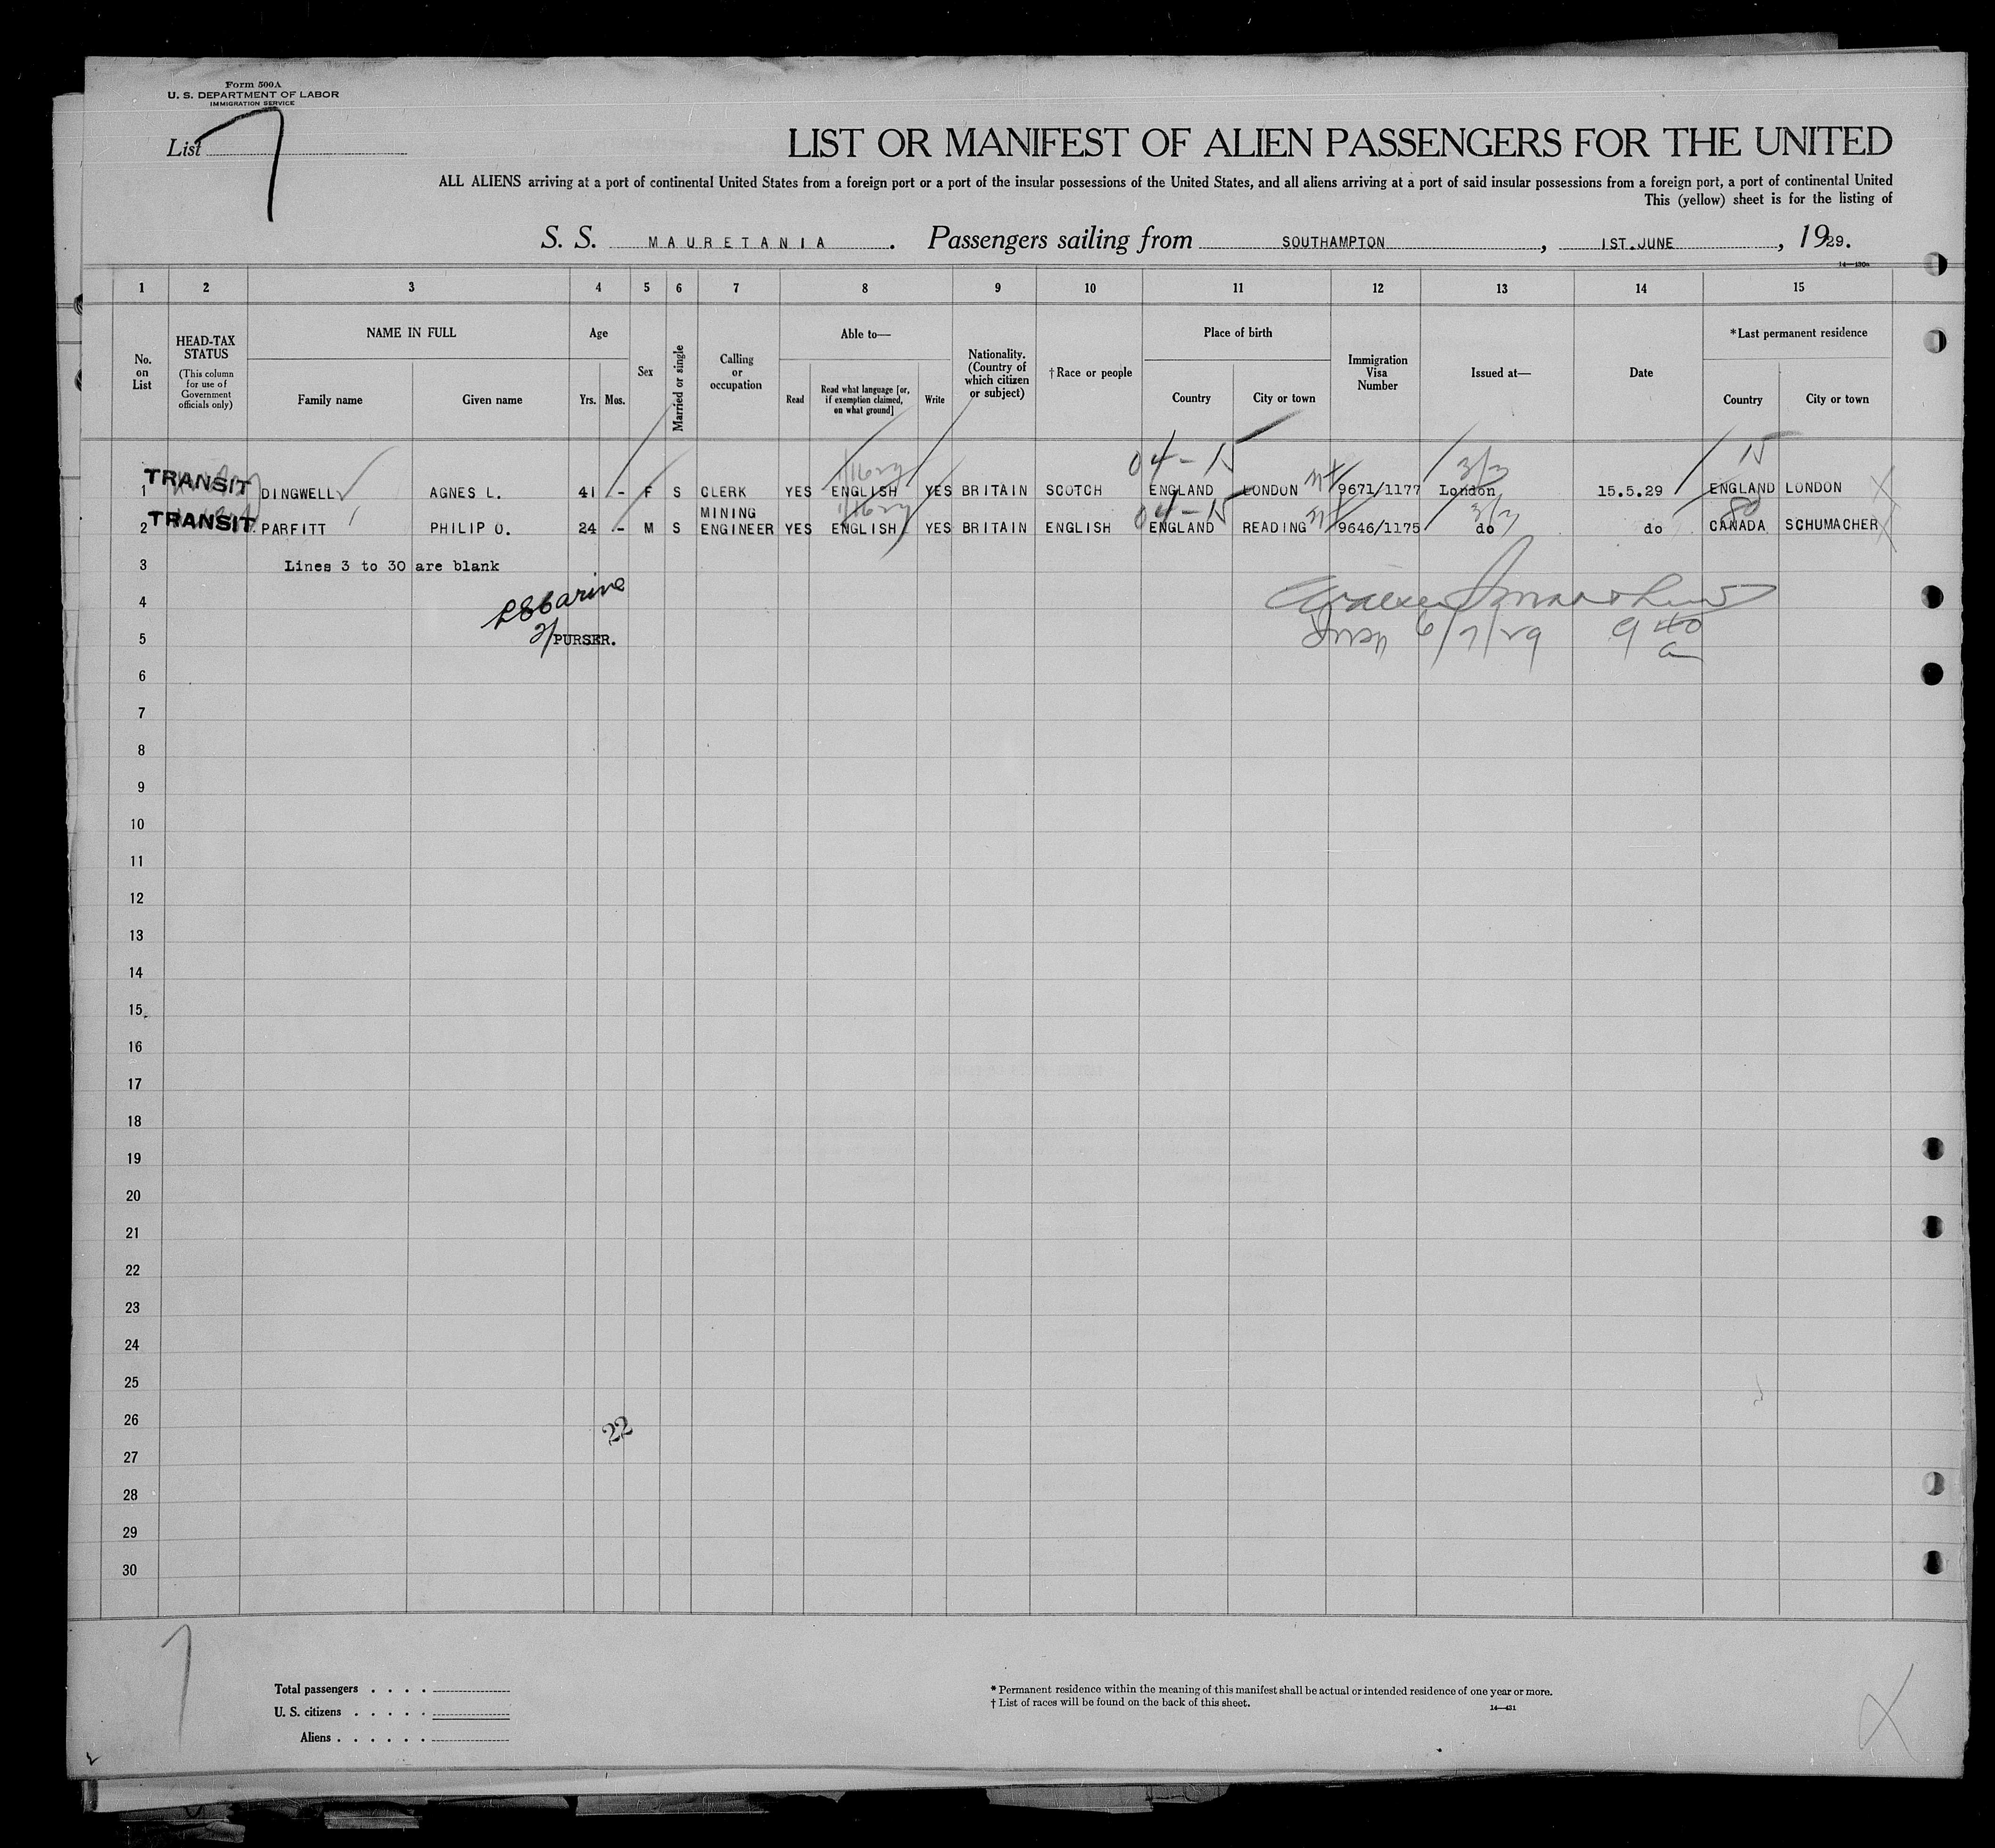 Form 500A
U. S. DEPARTMENT OF LABOR
IMMIGRATION SERVICE
List 7
LIST OR MANIFEST OF ALIEN PASSENGERS FOR THE UNITED
ALL ALIENS arriving at a port of continental United States from a foreign port or a port of the insular possessions of the United States, and all aliens arriving at a port of said insular possessions from a foreign port, a port of continental United
This (yellow) sheet is for the listing of
S. S. MAURETANIA. Passengers sailing from SOUTHAMPTON, 1ST.JUNE, 1929.
1 2 3 4 5 6 7 8 9 10 11 12 13 14 15
No. on List
HEAD-TAX STATUS
(This column for use of Government officials only)
NAME IN FULL
Family name Given name
Age
Yrs. Mos.
Sex
Married or single
Calling or occupation
Able to—
Read Read what language [or, if exemption claimed, on what ground] Write
Nationality. (Country of which citizen or subject)
†Race or people
Place of birth
Country City or town
Immigration Visa Number
Issued at—
Date
*Last permanent residence
Country City or town
04-15 3/3 15
TRANSIT
1 DINGWELL AGNES L. 41 - F S CLERK YES ENGLISH YES BRITAIN SCOTCH ENGLAND LONDON 9671/1177 London 15.5.29 ENGLAND LONDON
TRANSIT 04-15 80
2 PARFITT PHILIP O. 24 - M S MINING ENGINEER YES ENGLISH YES BRITAIN ENGLISH ENGLAND READING 9646/1175 do do CANADA SCHUMACHER
3 Lines 3 to 30 are blank
4
5 2/PURSER. 6/7/29 9 40 a
6
7
8
9
10
11
12
13
14
15
16
17
18
19
20
21
22
23
24
25
26
22
27
28
29
30
7
Total passengers . . . .
U. S. citizens . . . . .
Aliens . . . . . .
* Permanent residence within the meaning of this manifest shall be actual or intended residence of one year or more.
† List of races will be found on the back of this sheet.
14—431